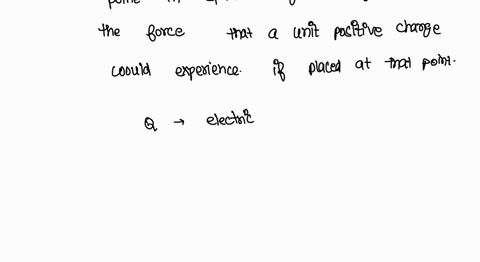 the force that a unit positive charge
coould experience. if placed at that point.
Q → electric